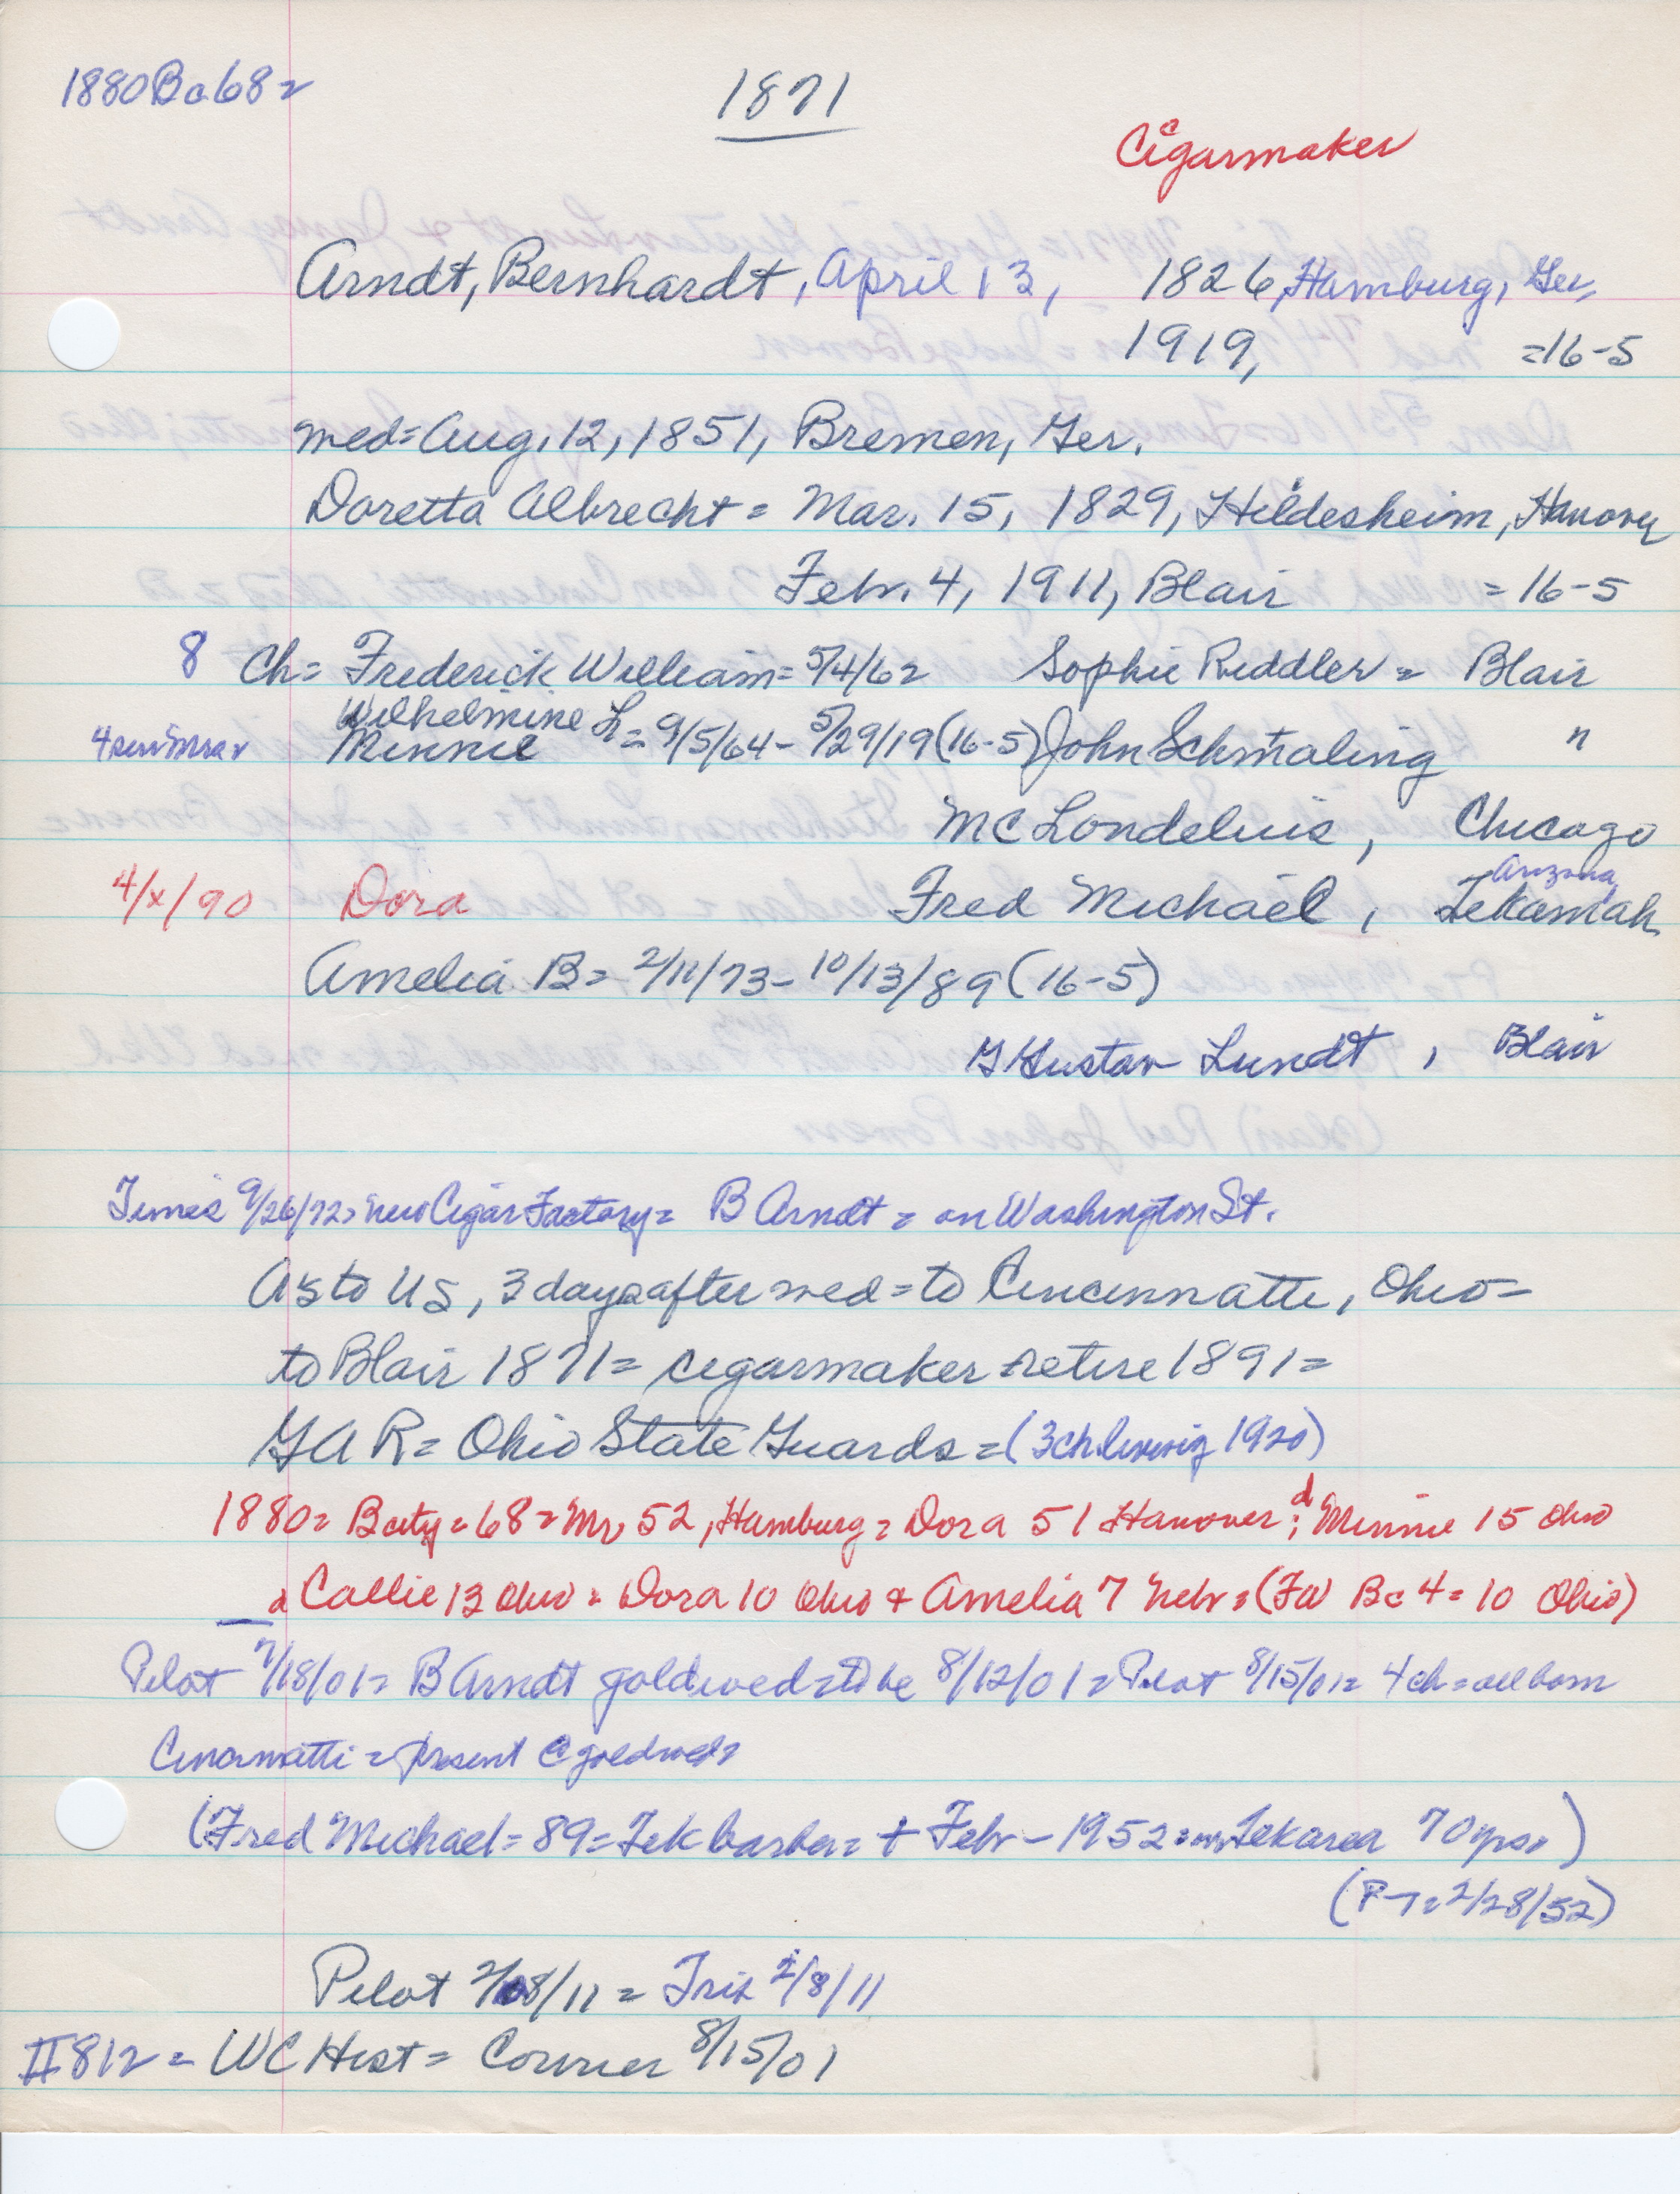 1880Bc68=
1871
Cigarmaker
Arndt, Bernhardt, April 13, 1826, Hamburg, Ger,
1919, =16-5
med=Aug, 12, 1851, Bremen, Ger.
Doretta Albrecht = Mar. 15, 1829, Hildesheim, Hanover
Feb. 4, 1911, Blair = 16-5
8 Ch= Frederick William= 5/4/62 Sophie Riddler = Blair
Wilhelmine L
Minnie = 9/5/64- 5/29/19(16-5) John Schmaling "
MC Londelius, Chicago
Arizona,
4/x/90 Dora Fred Michael, Tekamah
Amelia B= 2/11/73- 10/13/89 (16-5)
G Gustav Lundt, Blair
Times 9/26/72= new Cigar Factory= B Arndt = on Washington St.
A's to US, 3 days after med = to Cincinnatti, Ohio-
to Blair 1871= cigarmaker =retire 1891=
GAR= Ohio State Guards = (3ch living 1920)
1880= Bcity=68= Mr 52, Hamburg= Dora 51 Hanover: d Minnie 15 Ohio
d Callie 13 Ohio = Dora 10 Ohio + Amelia 7 Nebr = (Fa Bc 4= 10 Ohio)
Pilot 7/18/01= B Arndt goldwed = to be 8/12/01= Pilot 8/15/01= 4ch = all born
Cincinnatti = present @ goldwed=
(Fred Michael= 89= Tek barber= + Feb- 1952= in Tek area 70 yrs.)
(P-T= 2/28/52)
Pilot 2/8/11 = Trib 2/8/11
II812 = WC Hist= Courier 8/15/01